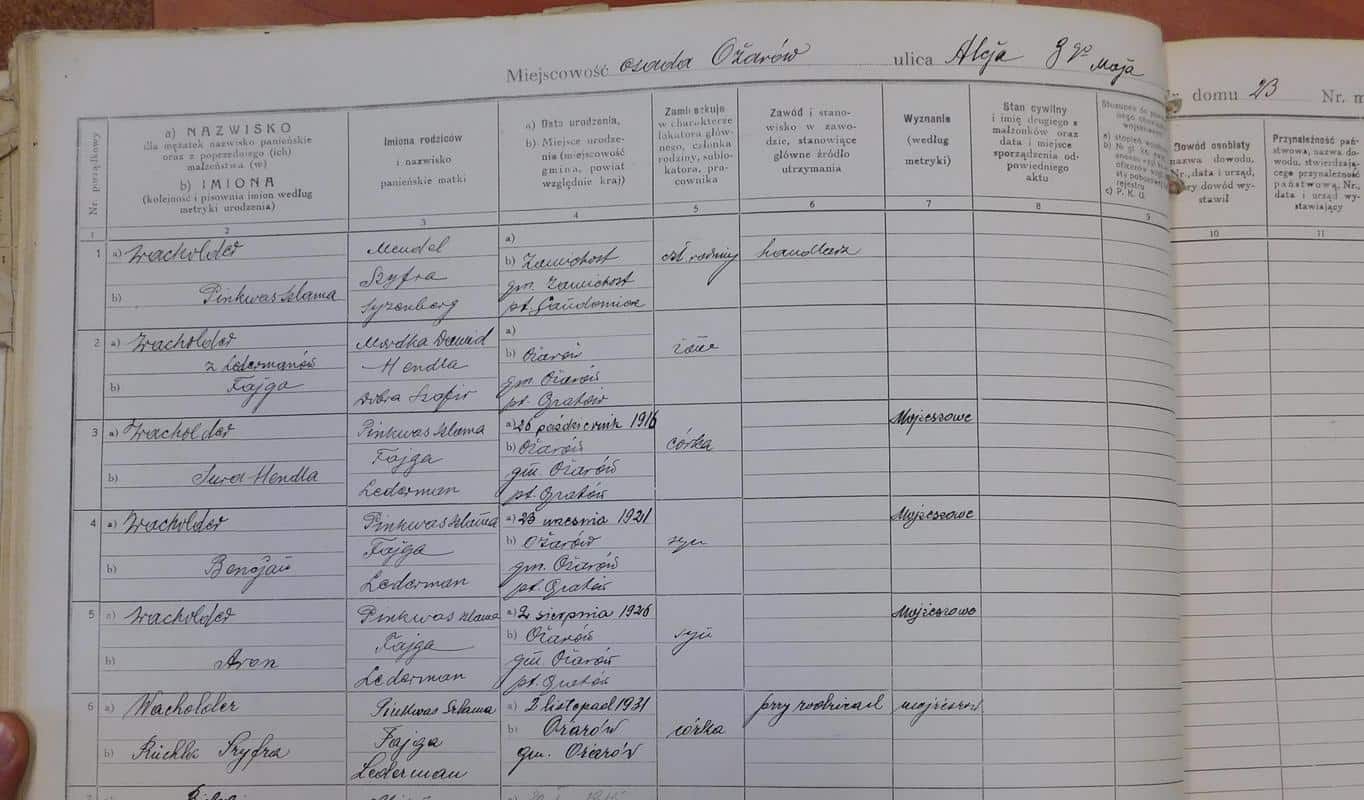 Miejscowość osada Ożarów ulica Aleja 3 go Maja
domu 23 Nr. m
Nr. porządkowy
a) NAZWISKO
dla mężatek nazwisko panieńskie
oraz z poprzedniego (ich)
małżeństwa (w)
b) IMIONA
(kolejność i pisownia imion według
metryki urodzenia)
Imiona rodziców
i nazwisko
panieńskie matki
a) Data urodzenia,
b) Miejsce urodze-
nia (miejscowość
gmina, powiat
względnie kraj)
Zamieszkuje
w charakterze
lokatora głów-
nego, członka
rodziny, sublo-
katora, pra-
cownika
Zawód i stano-
wisko w zawo-
dzie, stanowiące
główne źródło
utrzymania
Wyznanie
(według
metryki)
Stan cywilny
i imię drugiego z
małżonków oraz
data i miejsce
sporządzenia od-
powiedniego
aktu
Stosunek do
c) P. K. U.
Dowód osobisty
nazwa dowodu,
Nr., data i urząd,
który dowód wy-
stawił
Przynależność pań-
stwowa, nazwa do-
wodu, stwierdzają-
cego przynależność
państwową, Nr.,
data i urząd wy-
stawiający
1 2 3 4 5 6 7 8 9 10 11
1 a) Wacholder Mendel a)
Szyfra b) Zawichost czł rodziny handlarz
b) Pinkwas Szlama gm. Zawichost
Syzenberg pt. Sandomierz
2 a) Wacholder Mordka Dawid a)
z Ledermanów Hendla b) Ożarów żona
b) Fajga gm Ożarów
Dobra Szafir pt. Opatów
3 a) Wacholder Pinkwas Szlama a) 26 październik 1916 Mojżeszowe
Fajga b) Ożarów córka
b) Sura-Hendla gm. Ożarów
Lederman pt. Opatów
4 a) Wacholder Pinkwas Szlama a) 23 wrzesnia 1921 Mojżeszowe
Fajga b) Ożarów syn
b) Bencjan gm. Ożarów
Lederman pt. Opatów
5 a) Wacholder Pinkwas Szlama a) 2 sierpnia 1926 Mojżeszowe
Fajga b) Ożarów syn
b) Aron gm. Ożarów
Lederman pt. Opatów
6 a) Wacholder Pinkwas Szlama a) 2 listopad 1931 przy rodzicach mojżeszow
b) Ruchla Szyfra Fajga b) Ożarów córka
gm. Ożarów
Lederman
7